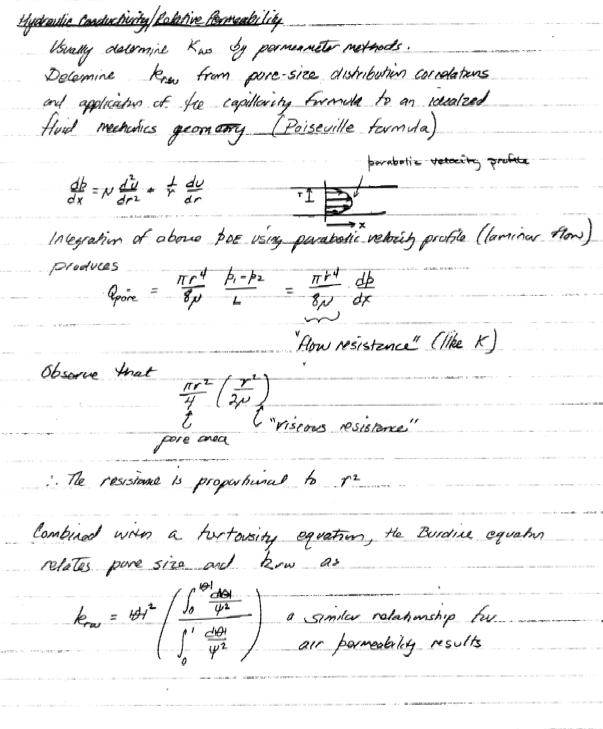 Hydraulic Conductivity/Relative Permeability
Usually determine Kws by permeameter methods.
Determine krw from pore-size distribution correlations
and application of the capillarity formula to an idealized
fluid mechanics geometry (Poiseville formula)
parabolic velocity profile
dp/dx = μ d²u/dr² + 1/r du/dr
r
x
Integration of above PDE using parabolic velocity profile (laminar flow)
produces
Qpore = πr⁴/8μ p₁-p₂/L = πr⁴/8μ dp/dx
"flow resistance" (like K)
Observe that
πr²/4 (r²/2μ)
"viscous resistance"
pore area
∴ The resistance is proportional to r²
Combined with a turtousity equation, the Burdine equation
relates pore size and krw as
krw = |Θ|² (∫₀^|Θ| d|Θ|/ψ² / ∫₀¹ d|Θ|/ψ²) a similar relationship for
air permeability results